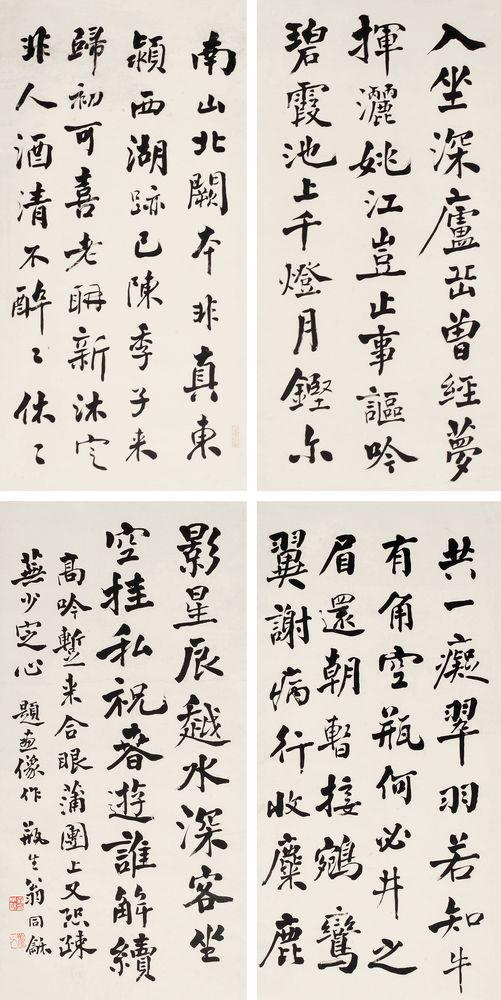 入坐深廬曾經夢
揮灑姚江豈止事謳吟
碧霞池上千燈月鏗尔
南山北闕本非真東
潁西湖跡已陳季子来
歸初可喜老聃新沐定
非人酒清不醉〻休〻
共一癡翠羽若知牛
有角空瓶何必井之
眉還朝暫接鵷鸞
翼謝病行收麋鹿
影星辰越水深客坐
空挂私祝春遊誰解續
高吟蹔来合眼蒲團上又恐疎
蕪少定心 題畫像作 瓶生翁同龢